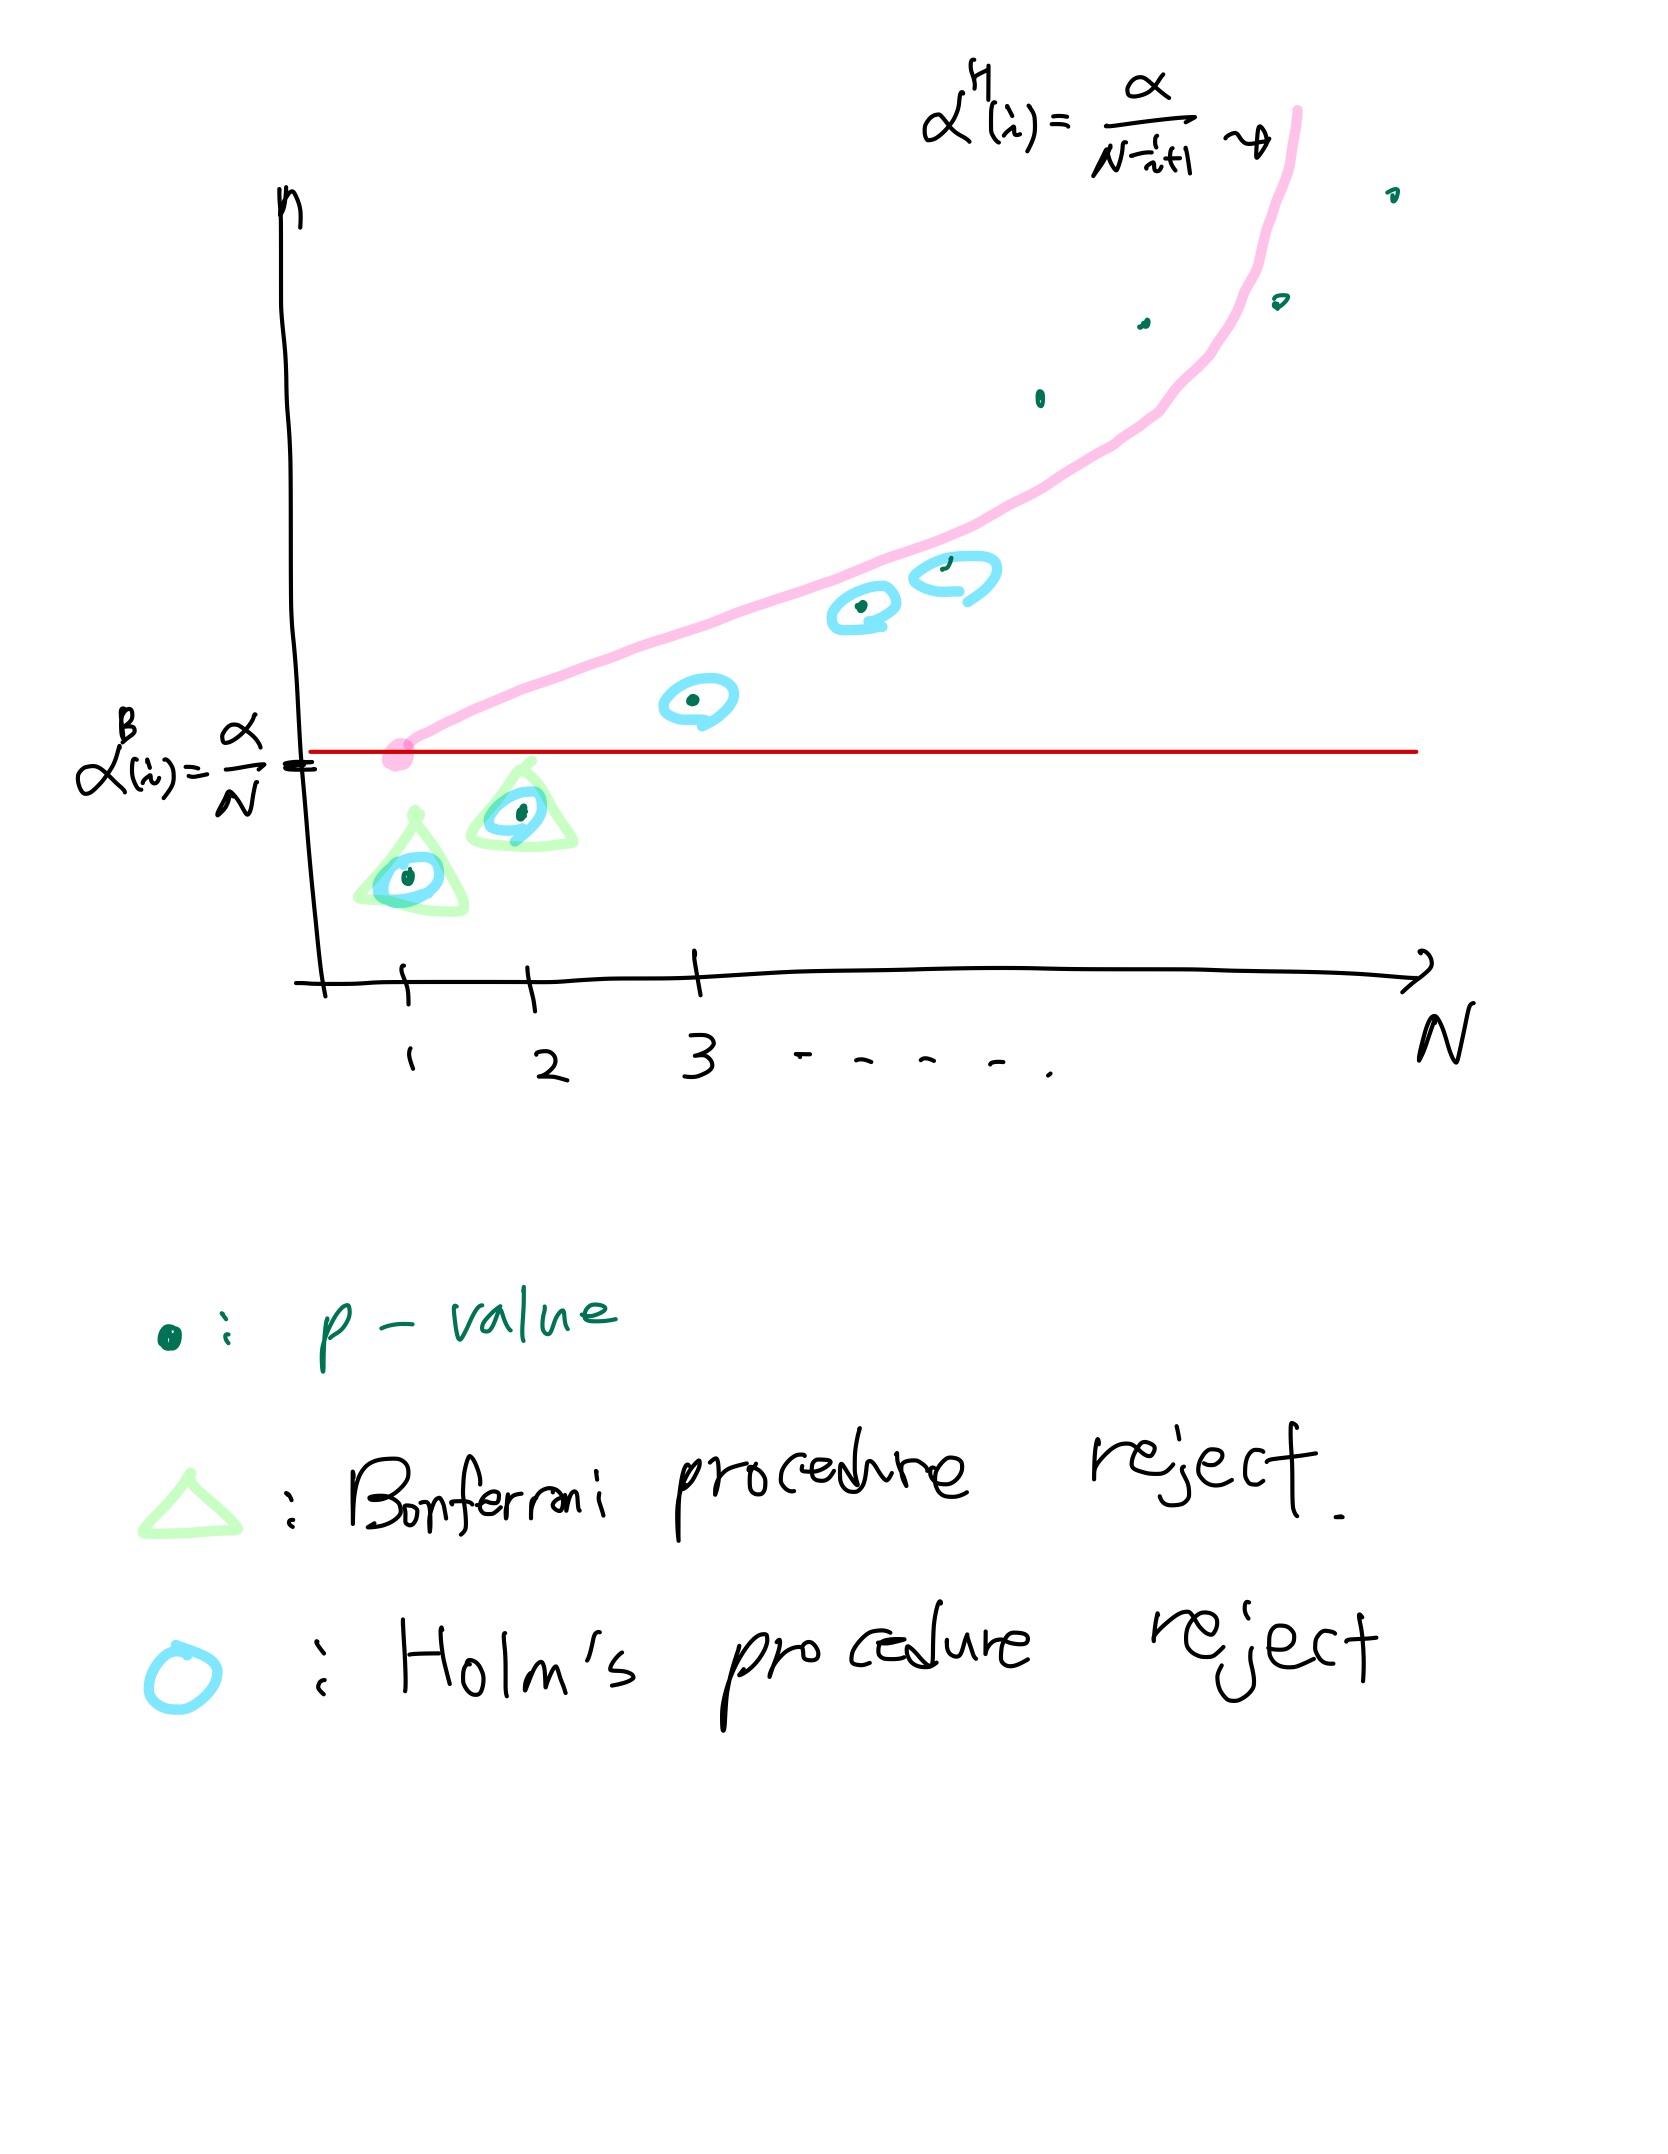 α^H(i) = α/(N-i+1)
α^B(i) = α/N
1 2 3 - - - - . N
: p - value
: Bonferroni procedure reject.
: Holm's procedure reject